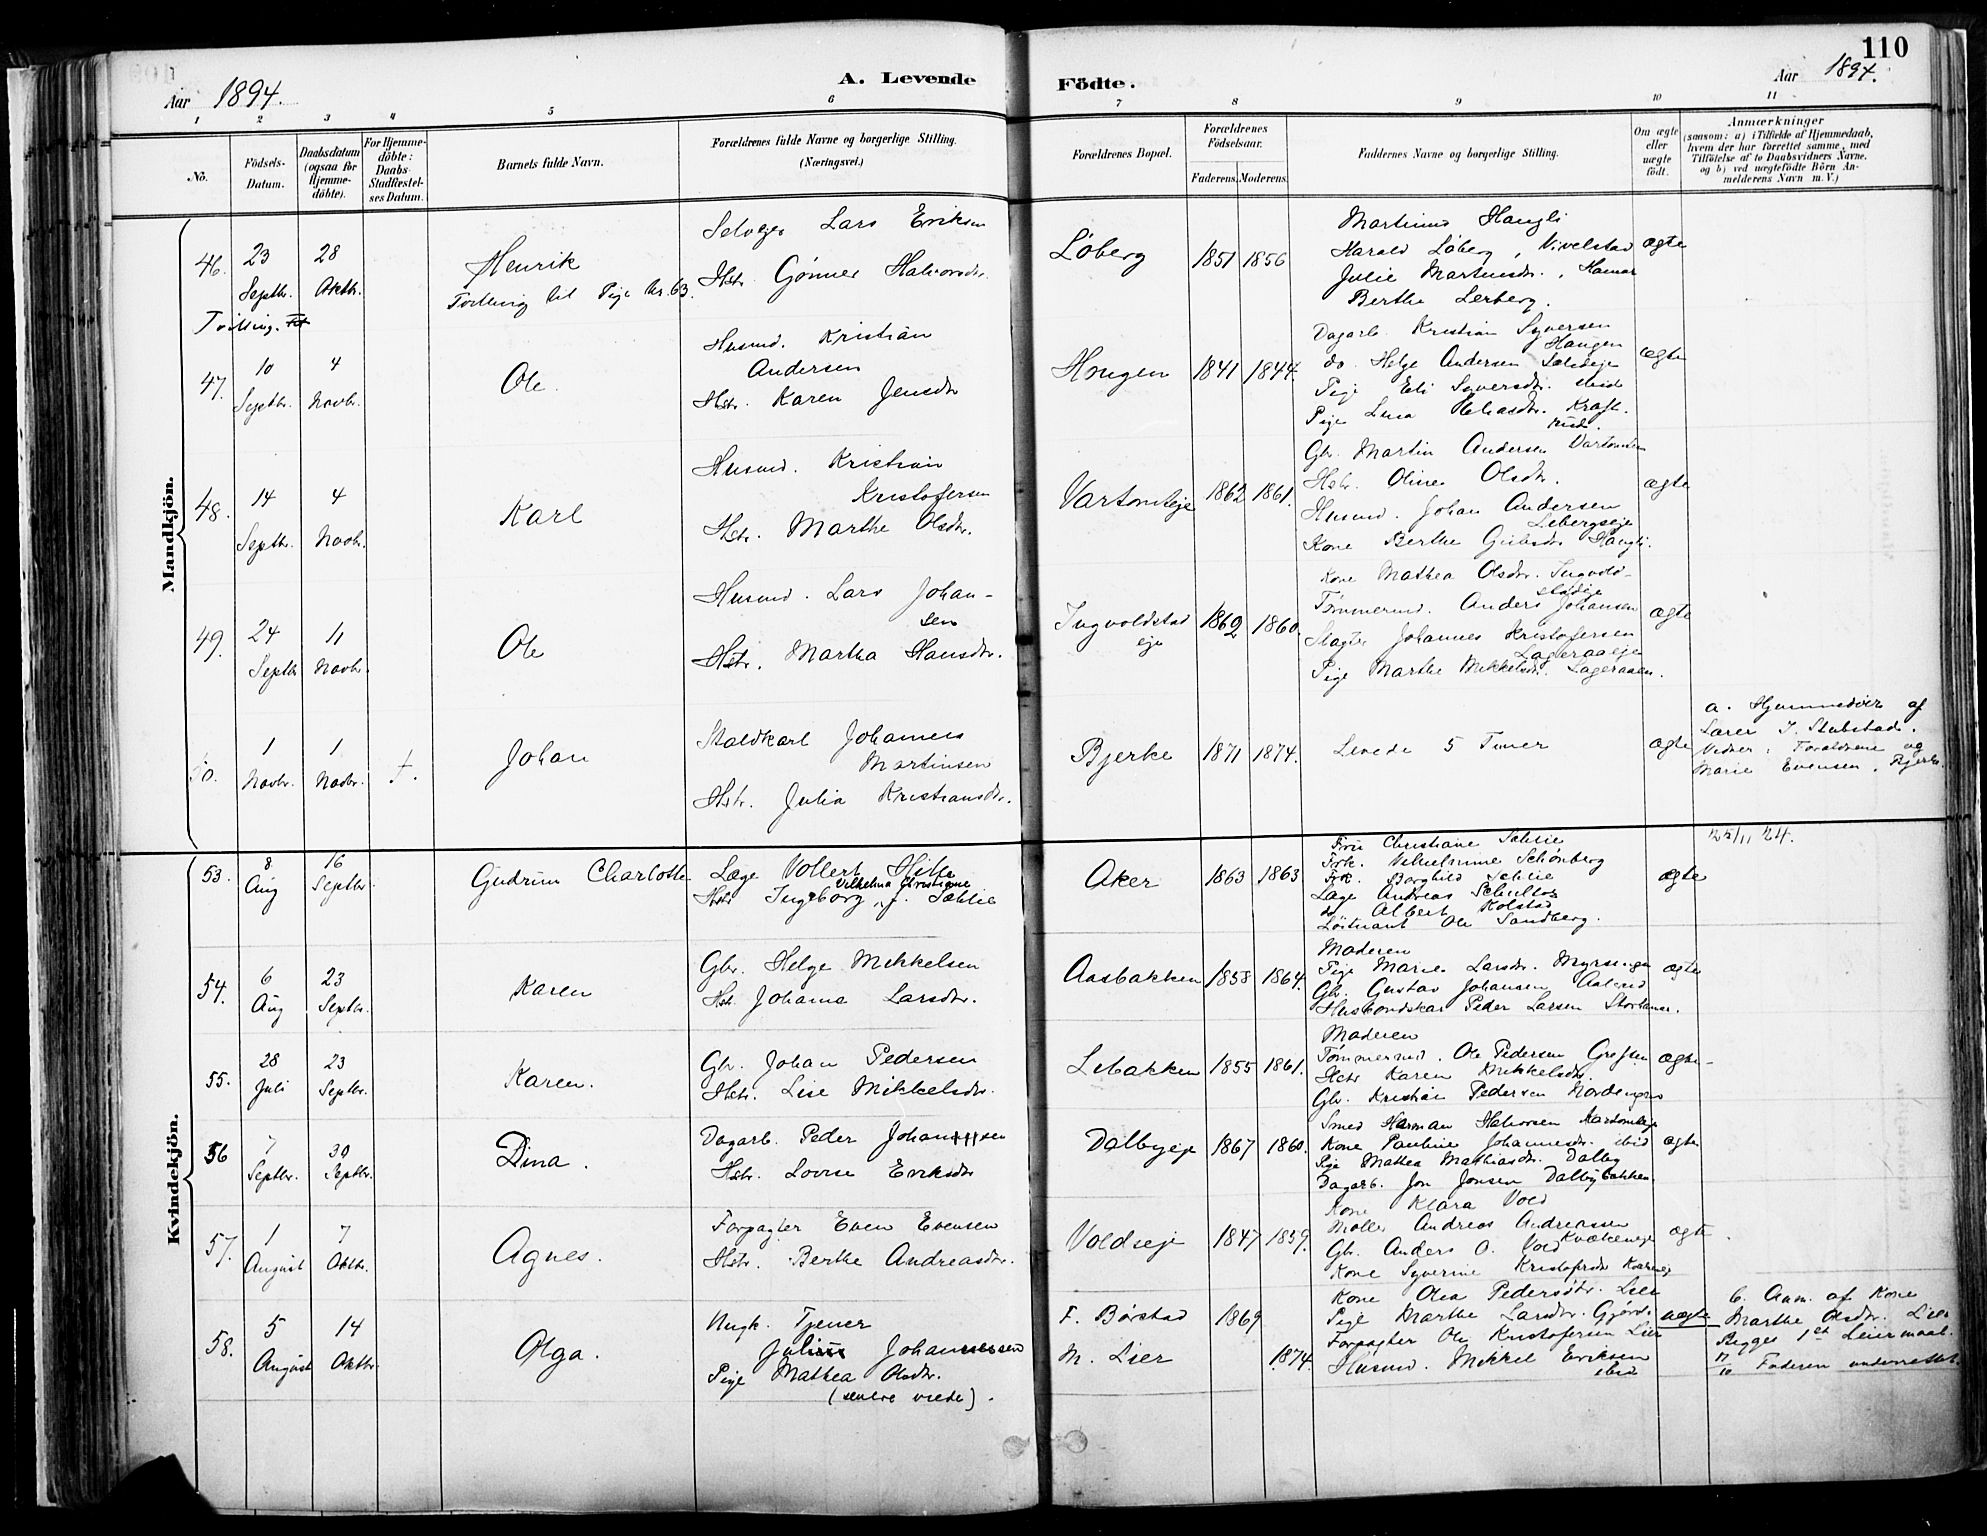 110
Aar 1894.
A. Levende
Födte.
Aar 1894.
1 2 3 4 5 6 7 8 9 10 11
No.
Födsels-Datum.
Daabsdatum (ogsaa for Hjemme-döbte).
For Hjemme-döbte: Daabs-Stadfæstel-ses Datum.
Barnets fulde Navn.
Forældrenes fulde Navne og borgerlige Stilling. (Næringsvei.)
Forældrenes Bopæl.
Forældrenes Födselsaar.
Faderens. Moderens.
Faddernes Navne og borgerlige Stilling.
Om ægte eller uægte födt.
Anmærkninger
(saasom: a) i Tilfælde af Hjemmedaab,
hvem der har forrettet samme, med
Tilföielse af to Daabsvidners Navne.
og b) ved uægtefödte Börn An-
melderens Navn m. V.)
Mandkjön.
46. 23 Septbr. 28 Oktbr.
Henrik
Tvilling til Pige Nr. 63.
Selveger Lars Eriksen
Hstr. Gønner Halvorsdr.
Løberg 1851 1856
Martinus Haugli
Harald Løberg, Nivelstad
Julie Martinsdr., Hamar
Berthe Lerberg.
ægte
Tvilling.
47. 10 Septbr. 4 Novbr.
Ole.
Husmd. Kristian
Andersen
Hstr. Karen Jensdr
Haugen 1841 1844.
Dagarb. Kristian Syversen
Haugen
do Helge Andersen
Pige Eli Syversdr. ibid
Pige Lina Heliasdr. Kraft-
rud.
ægte
48. 14 Septbr. 4 Novbr.
Karl
Husmd. Kristian
Kristofersen
Hstr. Marthe Olsdr.
Vartomteje 1862 1861.
Gbr. Martin Andersen Vartomten
Hstr. Oline Olsdr.
Husmd. Johan Andersen
Lebergseje
Kone Berthe Haugli.
ægte
49. 24 Septbr 11 Novbr.
Ole
Husmd. Lars Johan-
sen
Hstr. Martha Hansdr.
Ingvoldstad
eje
1862 1860.
Kone Mathea Olsdr. Ingvold-
stadeje
Tømmermd. Anders Johansen
Slagter Johannes Kristofersen
Lageraaeje
Pige Marthe Mikkelsdr. Lageraaen.
ægte
50. 1 Novbr. 1 Novbr. †.
Johan
Staldkarl Johannes
Martinsen
Hstr. Julia Kristiansdr.
Bjerke 1871 1874.
Levede 5 Timer
ægte
a. Hjemmedøbt af
Lærer J. Stubstad.
Vidner: Forældrene og
Marie Evensen, Bjerke.
Kvindekjön.
53. 8 Aug 16 Septbr.
Gudrun Charlotte
Læge Vollert Hille
Vilhelma Christiane
Hstr Ingeborg, f. Sæhlie
Aker 1863 1863
Fru Christiane Sæhlie
Frk. Vilhelmine Schönberg
Frk. Borghild Sæhlie
Læge Andreas Schultos
do Albert Kolstad
Løitnant Ole Sandberg.
ægte
25/11 24.
54. 6 Aug 23 Septbr.
Karen
Gbr. Helge Mikkelsen
Hst. Johanna Larsdtr.
Aasbakken 1858 1864.
Moderen
Pige Marie Larsdr. Myrsengen
Gbr. Gustav Johansen Aalerud
Husbondskar Peder Larsen Storhamar.
ægte
55. 28 Juli 23 Septbr.
Karen.
Gbr. Johan Pedersen
Hstr. Lise Mikkelsdr.
Lebakken 1855 1861.
Moderen
Tømmermd. Ole Pedersen Grefsen
Hstr Karen Mikkelsdr.
Gbr. Kristian Pedersen Nordengen
ægte
56 7 Septbr. 30 Septbr.
Dina.
Dagarb. Peder Johansen
Hstr. Lovise Eriksdr
Dalbyeje 1867 1860.
Smed Herman Halvorsen Vartomteje
Kone Pauline Johannesdr. ibid
Pige Mathea Mathiasdr. Dalby
Dagarb. Jon Jonsen Dalbybakken
ægte
57. 1 August 7 Oktbr.
Agnes.
Forpagter Even Evensen
Hstr. Berthe Andreasdr.
Voldseje 1847 1859.
Kone Klara Vold
Møller Andreas Andreassen
Kvækeneje
Gbr. Anders O. Vold
Kone Syverine Kristofersdr
ægte.
58. 5 August 14 Oktbr.
Olga.
Ungk. Tjener
Julius Johannessen
Pige Mathea Olsdr.
F. Børstad 1869
M. Lier 1874.
Kone Olea Pedersdtr. Lier
Pige Marthe Larsdr.
Forpagter Ole Kristofersen Lier
Husmd. Mikkel Eriksen
ibid
uægte
b. Anm. af Kone
Marthe Olsdr. Lier
Begges 1st Leiermaal.
17/10 Faderen underrettet.